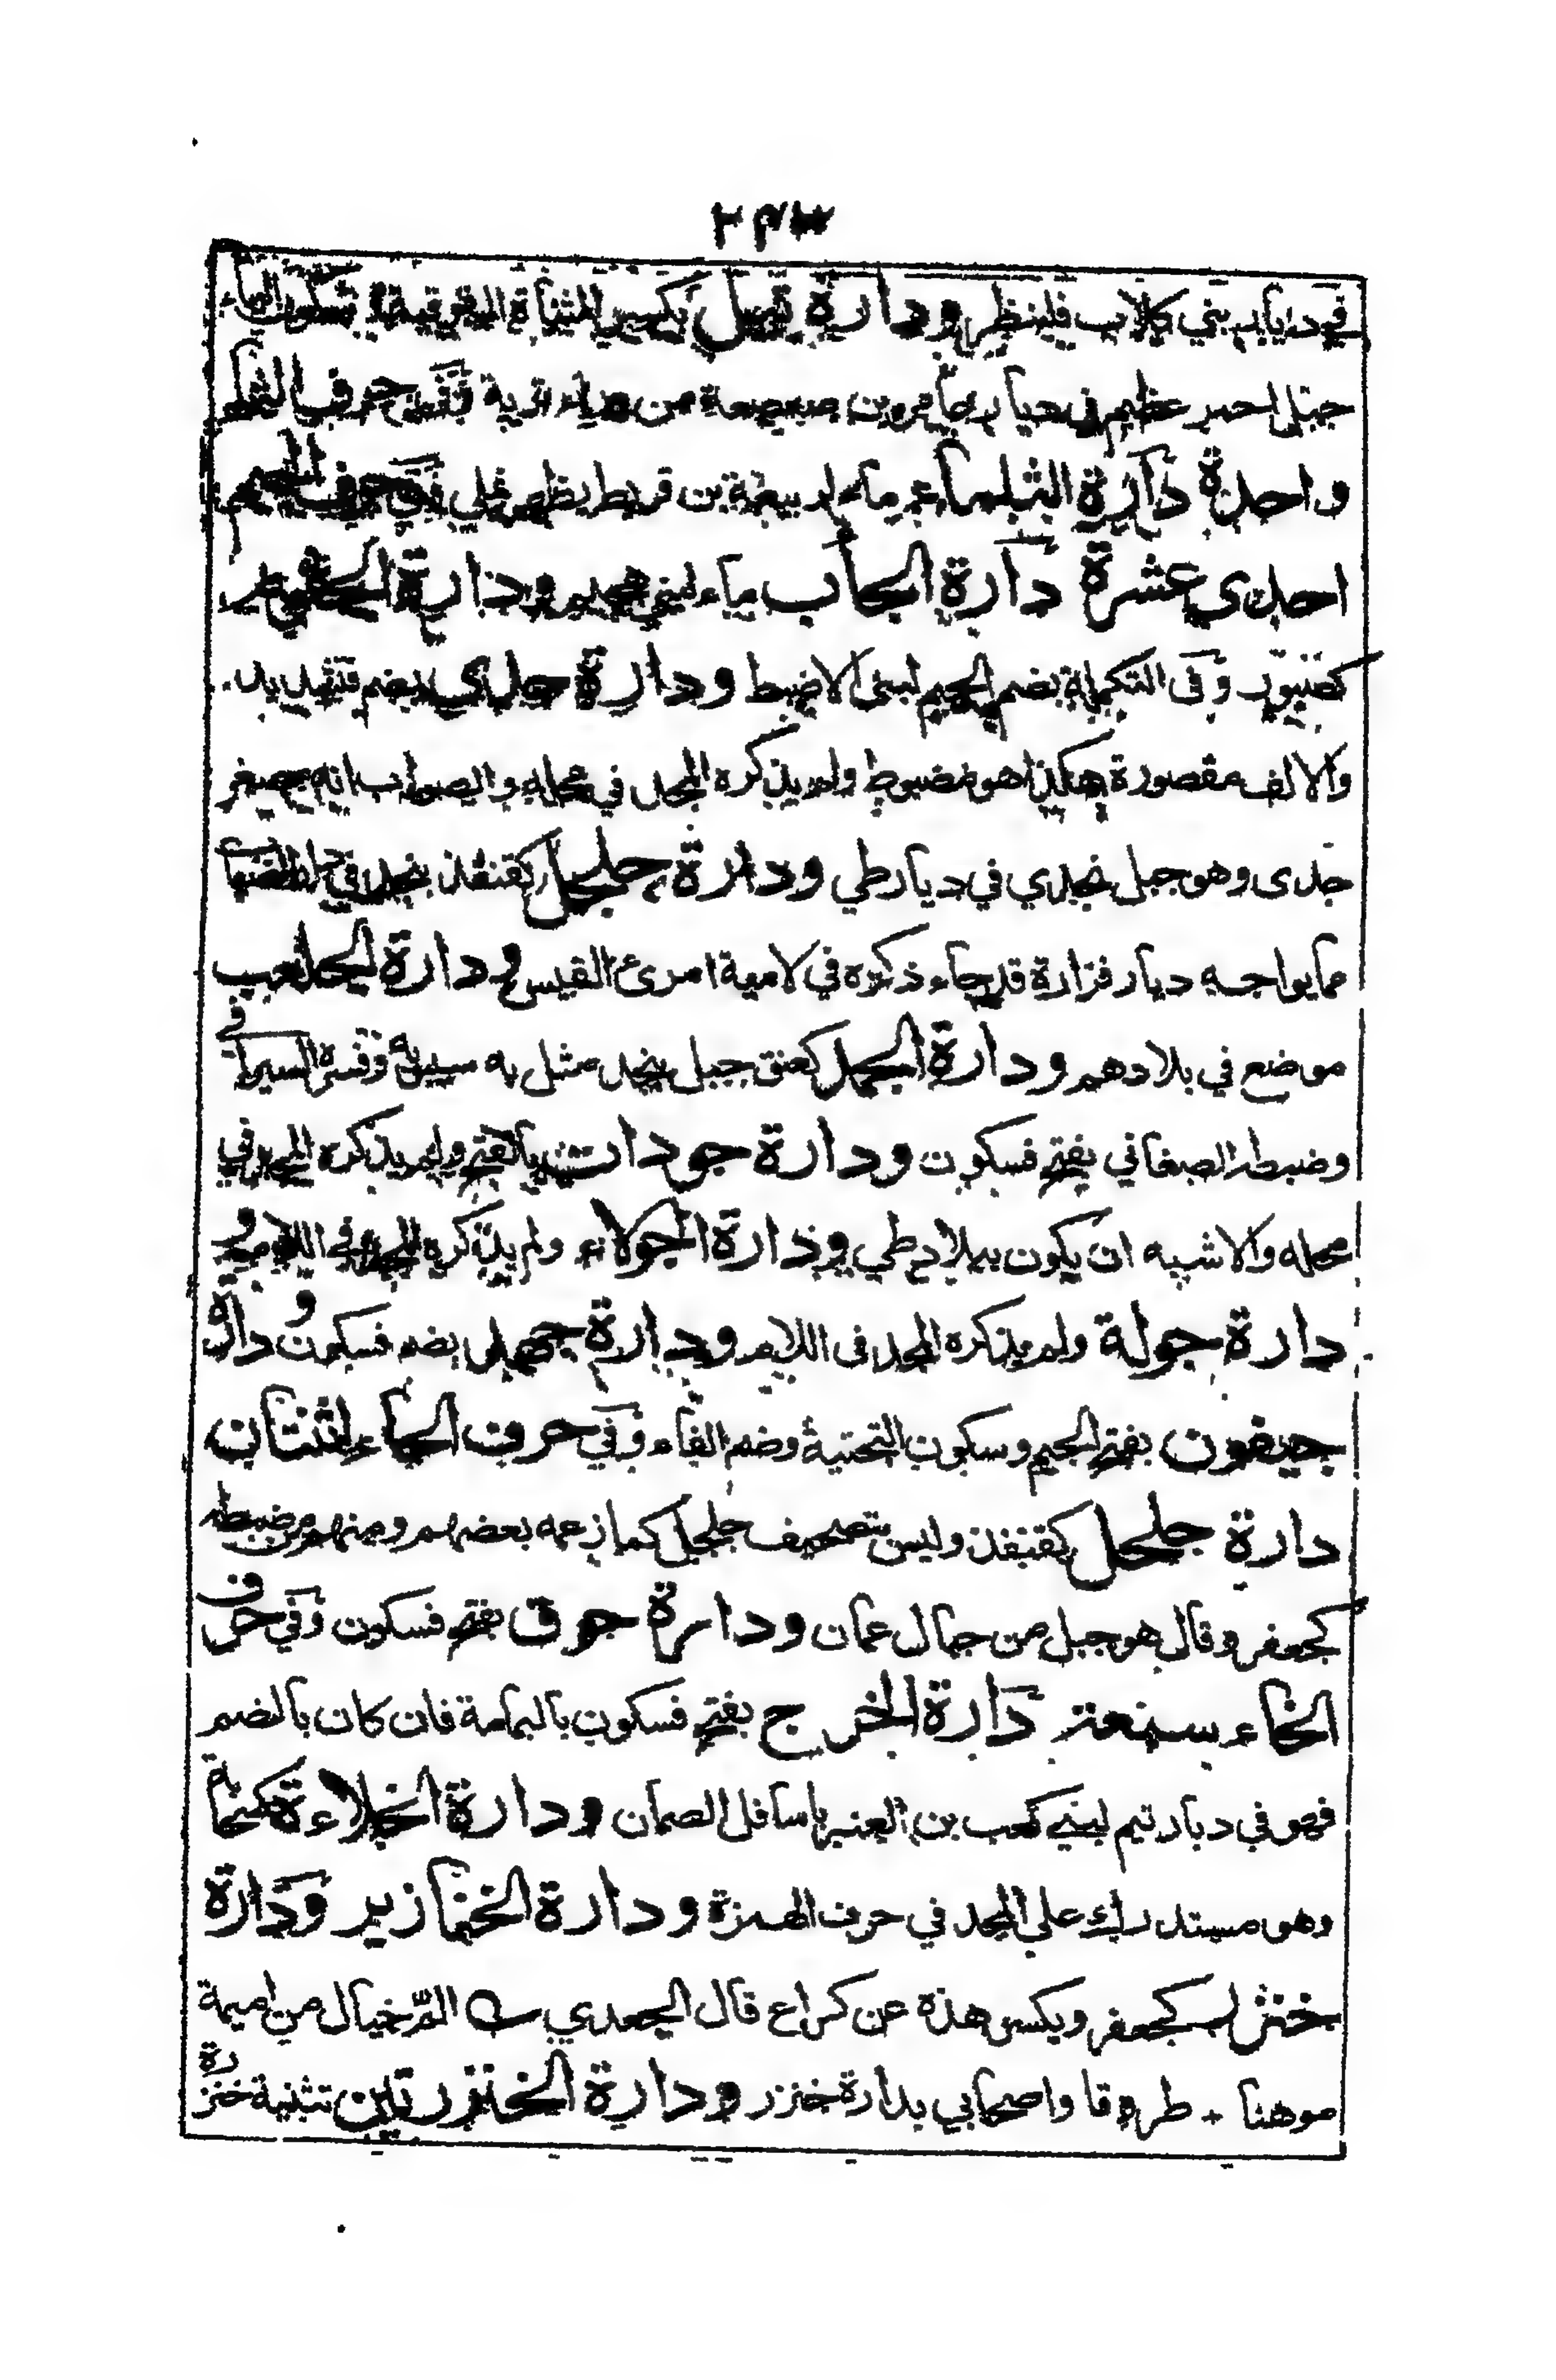 ٢٤٣
في ديار بني كلاب فلينظر ودارة تيل بكسر المثناة الفوقية وسكون الياء
جبل احمر عظيم في ديار عامر بن صعصعة من وراء تربة وفي حرف الثاء
واحدة دارة الثلماء ماء لربيعة بن قريط بظهر نملي وفي حرف الجيم
احدى عشرة دارة الجأب ماء لبني هجيم ودارة الجثوم
كصبور وفي التكملة بضم الجيم لبني الاضبط ودارة جدي بضم فتشديد
والالف مقصورة هكذا هو مضبوط ولم يذكره المجد في محله والصواب انه مصغر
جدى وهو جبل نجدي في ديار طي ودارة جلجل كقنفذ بنجد في دار الضباب
مما يواجه ديار فزارة قد جاء ذكره في لامية امرئ القيس ودارة الجلعب
موضع في بلادهم ودارة الجمد كعنق جبل بنجد مثل به سيبويه وفسره السيرافي
وضبطه الصغاني بفتح فسكون ودارة جودات بالفتح ولم يذكره المجد في
محله والاشبه ان يكون ببلاد طي ودارة الجولاء ولم يذكره المجد في اللام و
دارة جولة ولم يذكره المجد في اللام ودارة جهد بضم فسكون ودارة
جيفون بفتح الجيم وسكون التحتية وضم الفاء وفي حرف الحاء اثنتان
دارة جلحل كقنفذ وليس بتصحيف جلجل كما زعمه بعضهم ومنهم من ضبطه
كجعفر وقال هو جبل من جبال عمان ودارة حوق بفتح فسكون وفي حرف
الخاء سبعة دارة الخرج بفتح فسكون باليمامة فان كان بالضم
فهو في ديار تيم لبني كعب بن العنبر باسافل الصمان ودارة الخلاءة كسحابة
وهو مستدرك على المجد في حرف الهمزة ودارة الخنازير ودارة
خنزر كجعفر ويكسر هذه عن كراع قال الجعدي الم خيال من اميمة
موهنا * طروقا واصحابي بدارة خنزر ودارة الخنزرتين تثنية خنزرة